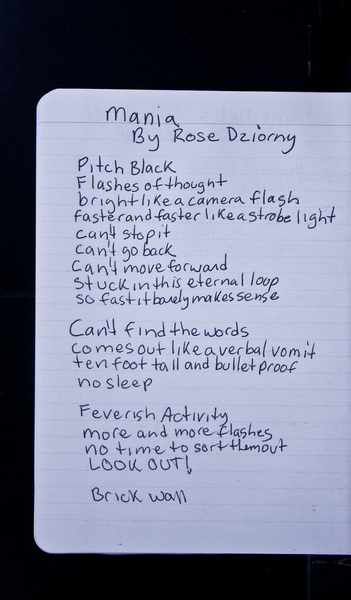 Mania
By Rose Dziorny
Pitch Black
Flashes of thought
bright like a camera flash
faster and faster like a strobe light
can't stop it
can't go back
Can't move forward
stuck in this eternal loop
so fast it barely makes sense
Can't find the words
comes out like a verbal vomit
ten foot tall and bullet proof
no sleep
Feverish Activity
more and more flashes
no time to sort them out
LOOK OUT!
Brick wall